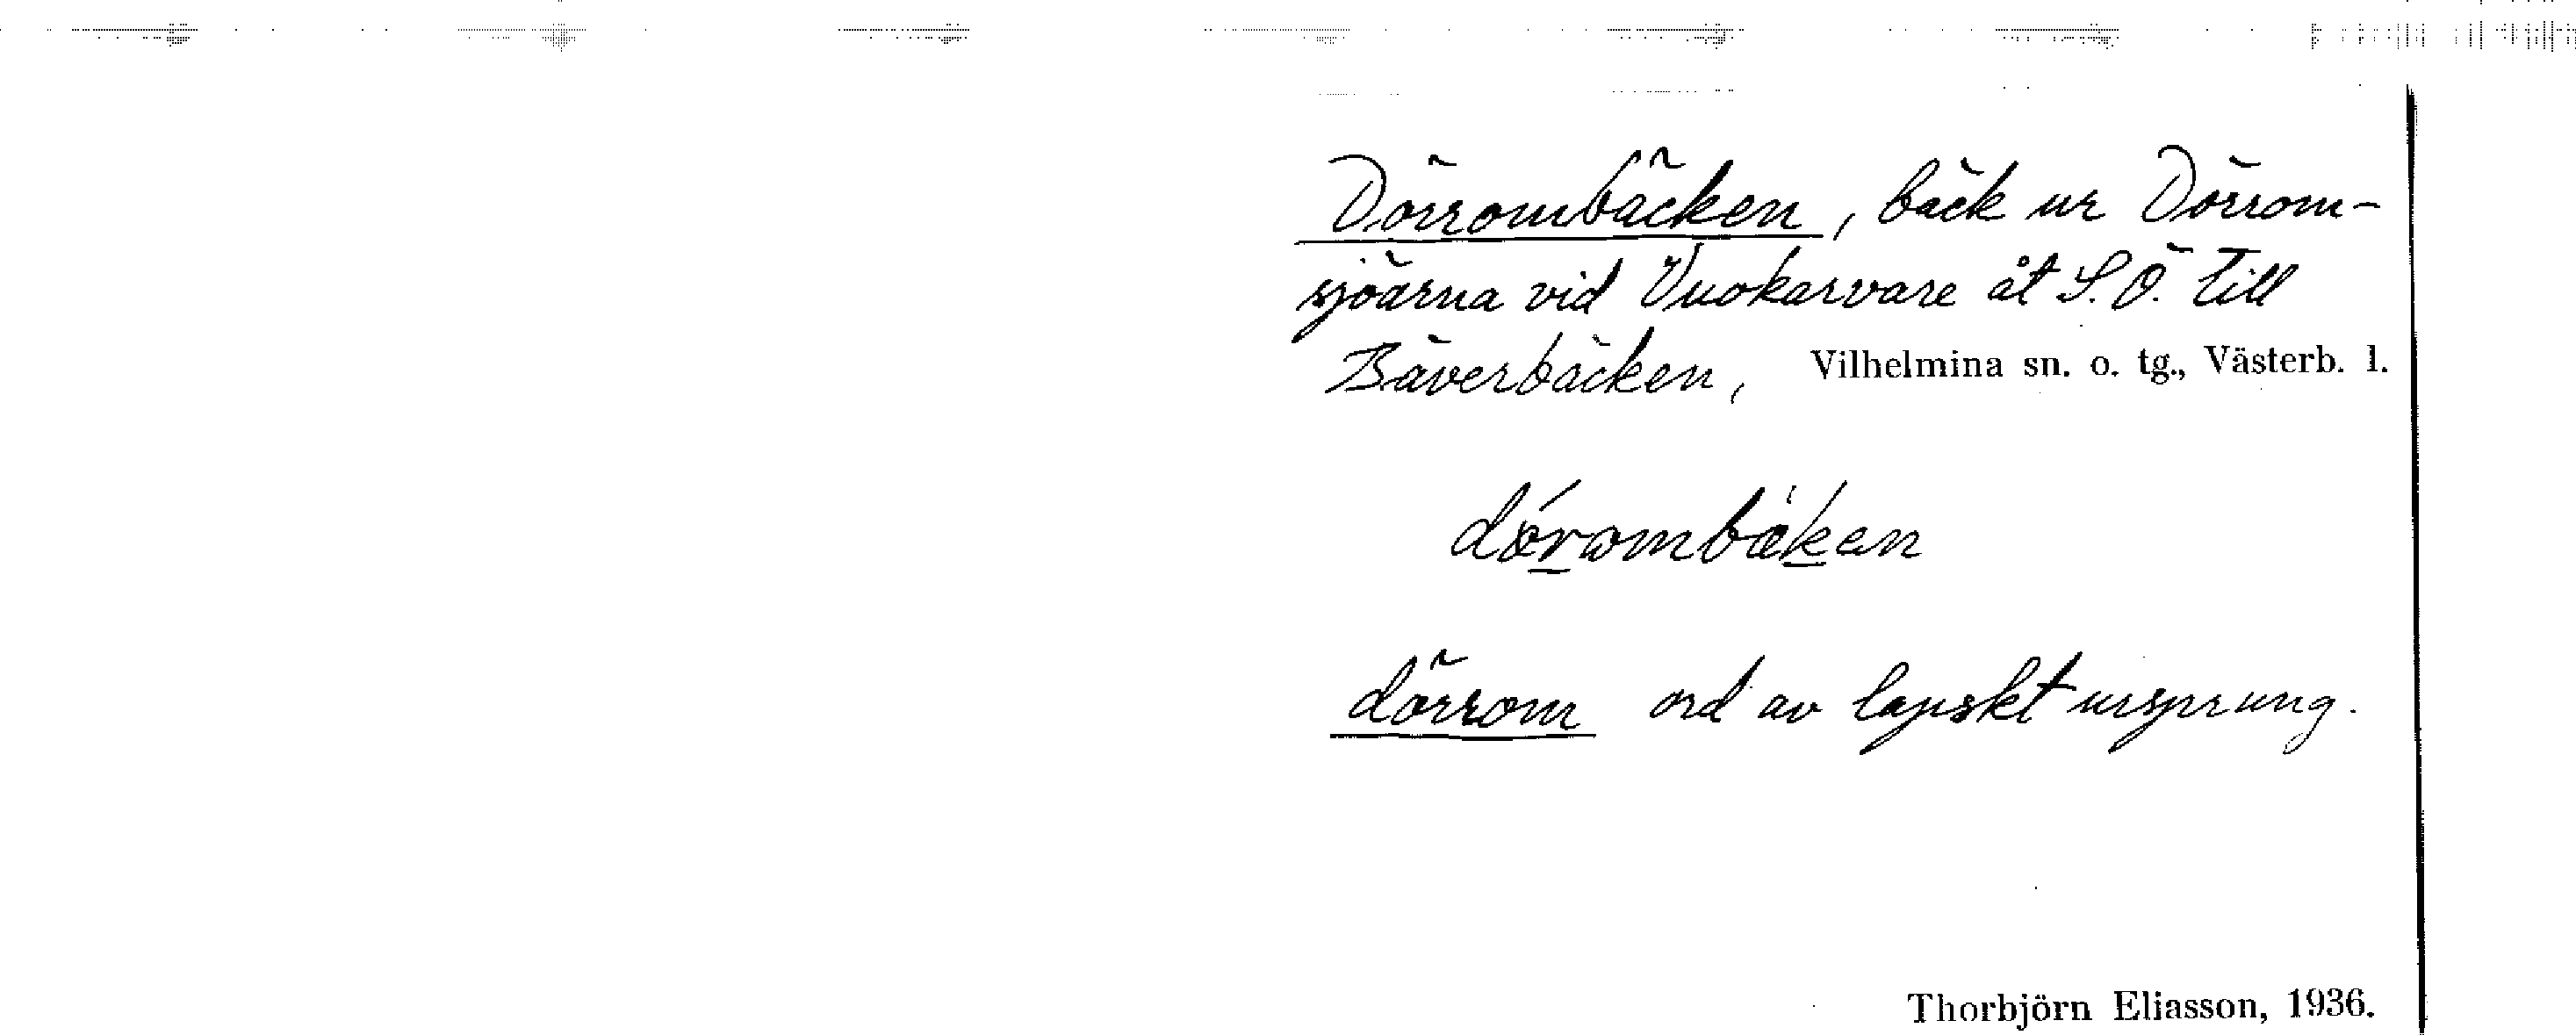 Dörrombäcken, bäck ur Dörrom-
sjöarna vid Vuokarvare åt S.Ö. till
Bäverbäcken, Vilhelmina sn. o. tg., Västerb. l.
dörrom ord av lapskt ursprung.
Thorbjörn Eliasson, 1936.